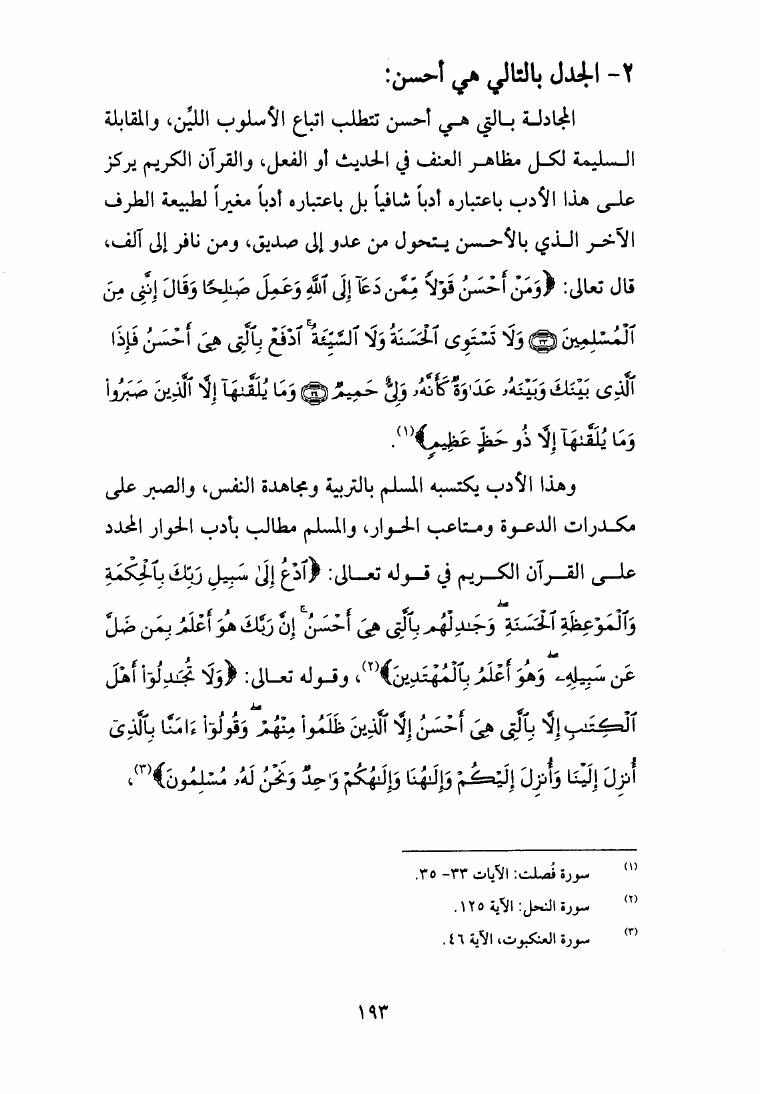 ٢- الجدل بالتالي هي أحسن:
المجادلة بالتي هي أحسن تتطلب اتباع الأسلوب الليِّن، والمقابلة
السليمة لكل مظاهر العنف في الحديث أو الفعل، والقرآن الكريم يركز
على هذا الأدب باعتباره أدباً شافياً بل باعتباره أدباً مغيراً لطبيعة الطرف
الآخر الذي بالأحسن يتحول من عدو إلى صديق، ومن نافر إلى آلف،
قال تعالى: ﴿وَمَنْ أَحْسَنُ قَوْلاً مِّمَّن دَعَآ إِلَى ٱللَّهِ وَعَمِلَ صَٰلِحًا وَقَالَ إِنَّنِى مِنَ
ٱلْمُسْلِمِينَ ۝٣٣ وَلَا تَسْتَوِى ٱلْحَسَنَةُ وَلَا ٱلسَّيِّئَةُ ۚ ٱدْفَعْ بِٱلَّتِى هِىَ أَحْسَنُ فَإِذَا
ٱلَّذِى بَيْنَكَ وَبَيْنَهُۥ عَدَٰوَةٌ كَأَنَّهُۥ وَلِىٌّ حَمِيمٌ ۝٣٤ وَمَا يُلَقَّىٰهَآ إِلَّا ٱلَّذِينَ صَبَرُوا۟
وَمَا يُلَقَّىٰهَآ إِلَّا ذُو حَظٍّ عَظِيمٍ﴾(١).
وهذا الأدب يكتسبه المسلم بالتربية ومجاهدة النفس، والصبر على
مكدرات الدعوة ومتاعب الحوار، والمسلم مطالب بأدب الحوار المحدد
على القرآن الكريم في قوله تعالى: ﴿ٱدْعُ إِلَىٰ سَبِيلِ رَبِّكَ بِٱلْحِكْمَةِ
وَٱلْمَوْعِظَةِ ٱلْحَسَنَةِ ۖ وَجَٰدِلْهُم بِٱلَّتِى هِىَ أَحْسَنُ ۚ إِنَّ رَبَّكَ هُوَ أَعْلَمُ بِمَن ضَلَّ
عَن سَبِيلِهِۦ ۖ وَهُوَ أَعْلَمُ بِٱلْمُهْتَدِينَ﴾(٢)، وقوله تعالى: ﴿وَلَا تُجَٰدِلُوٓا۟ أَهْلَ
ٱلْكِتَٰبِ إِلَّا بِٱلَّتِى هِىَ أَحْسَنُ إِلَّا ٱلَّذِينَ ظَلَمُوا۟ مِنْهُمْ ۖ وَقُولُوٓا۟ ءَامَنَّا بِٱلَّذِىٓ
أُنزِلَ إِلَيْنَا وَأُنزِلَ إِلَيْكُمْ وَإِلَٰهُنَا وَإِلَٰهُكُمْ وَٰحِدٌ وَنَحْنُ لَهُۥ مُسْلِمُونَ﴾(٣)،
(١) سورة فُصلت: الآيات ٣٣- ٣٥.
(٢) سورة النحل: الآية ١٢٥.
(٣) سورة العنكبوت، الآية ٤٦.
١٩٣